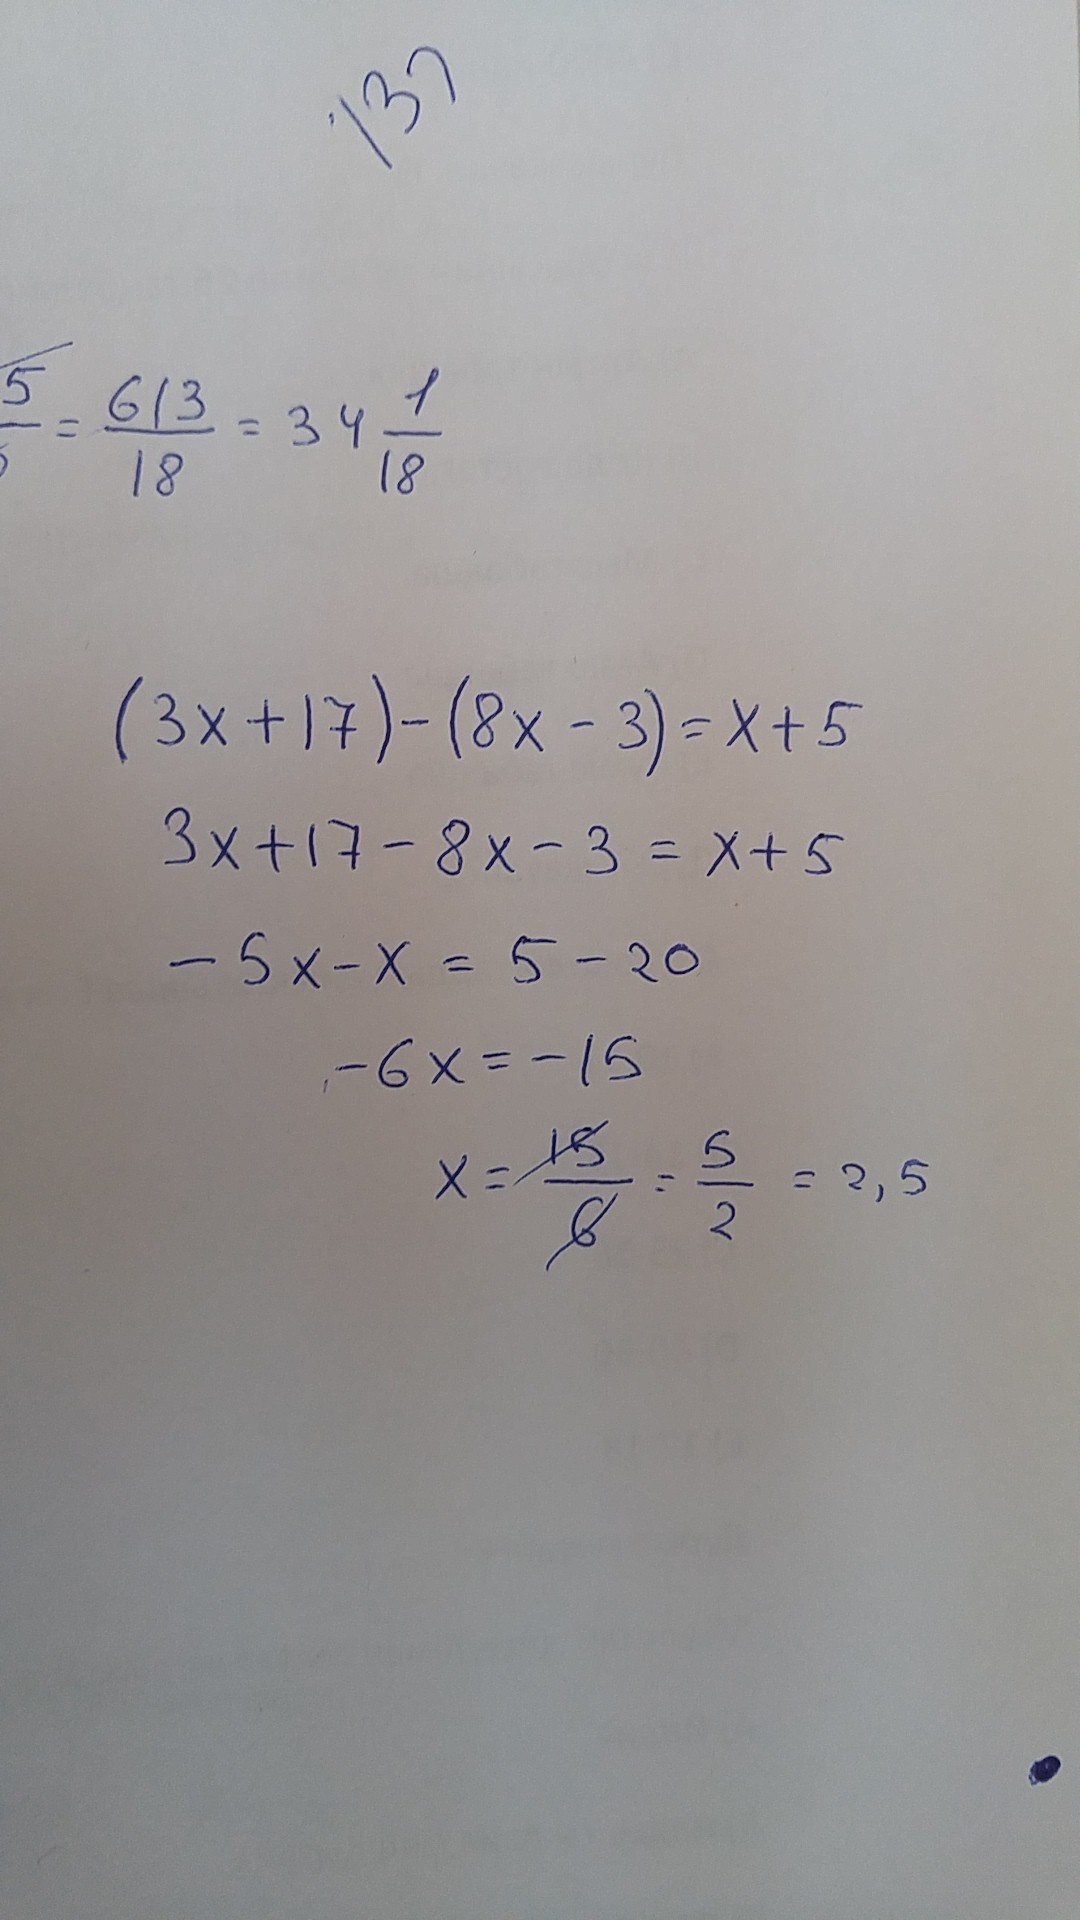 137
5 = 613/18 = 34 1/18
(3x+17)-(8x-3)=x+5
3x+17-8x-3=x+5
-5x-x=5-20
-6x=-15
x=15/6=5/2=2,5